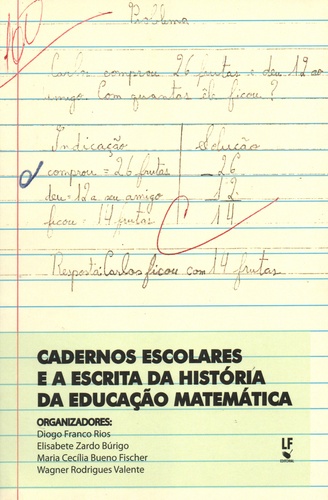 Problema
100
Carlos comprou 26 frutas e deu 12 ao
amigo. Com quantas êle ficou?
Indicação Solução
comprou = 26 frutas - 26
deu = 12 a seu amigo 12
ficou = 14 frutas 14
Resposta: Carlos ficou com 14 frutas
CADERNOS ESCOLARES
E A ESCRITA DA HISTÓRIA
DA EDUCAÇÃO MATEMÁTICA
ORGANIZADORES:
Diogo Franco Rios
Elisabete Zardo Búrigo
Maria Cecília Bueno Fischer
Wagner Rodrigues Valente
LF
EDITORIAL